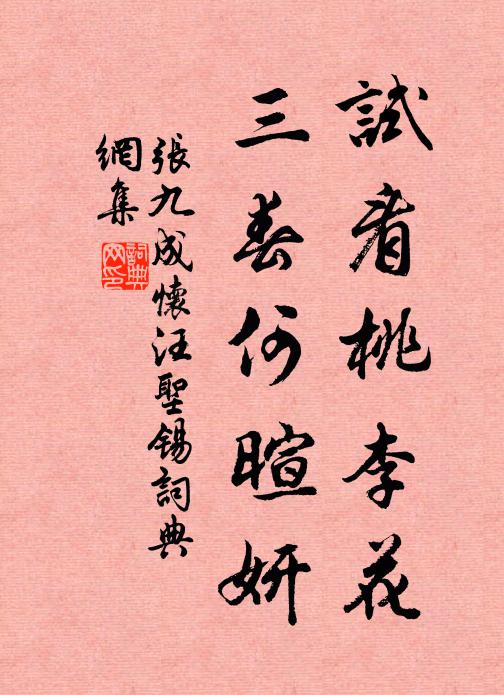 試看桃李花
三春何暄妍
張九成懷汪聖錫詞典
網集
詞典
网印